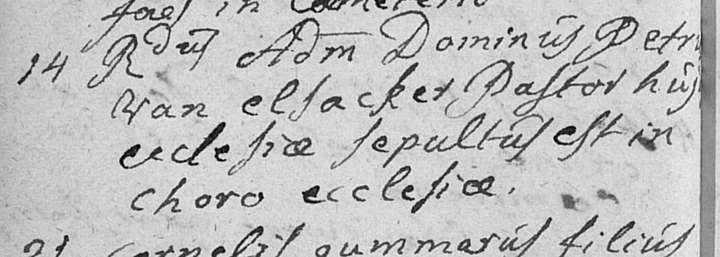 faes in Coemeterio
14 Rdus Adm Dominus Petrus
van elsacker Pastor hujus
ecclesiæ sepultus est in
choro ecclesiæ.
21 cornelis gummarus filius